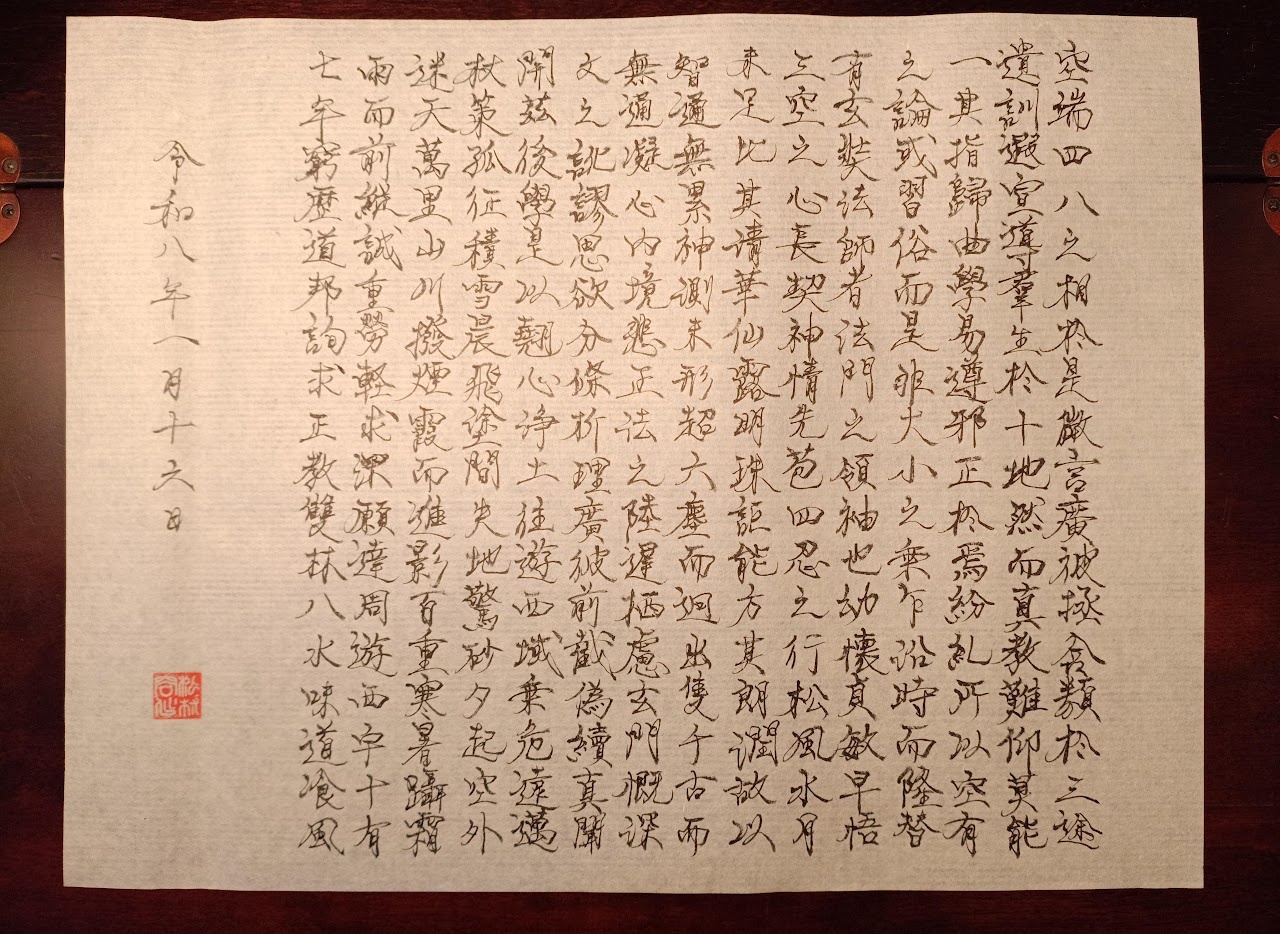 空端四八之相於是微言廣被拯含類於三途
遺訓遐宣導羣生於十地然而真教難仰莫能
一其指歸曲學易遵邪正於焉紛糺所以空有
之論或習俗而是非大小之乗乍沿時而隆替
有玄奘法師者法門之領袖也幼懷貞敏早悟
三空之心長契神情先苞四忍之行松風水月
未足比其清華仙露明珠詎能方其朗潤故以
智通無累神測未形超六塵而迥出隻千古而
無通凝心內境悲正法之陸遲栖慮玄門慨深
文之訛謬思欲分條析理廣彼前截偽續真開
開茲後學是以翹心浄土往遊西域乗危遠邁
杖策孤征積雪晨飛塗間失地驚砂夕起空外
迷天萬里山川撥煙霞而進影百重寒暑躡霜
雨而前縱誠重勞軽求深願達周遊西宇十有
七年窮歴道邦詢求正教雙林八水味道飡風
令和八年一月十六日